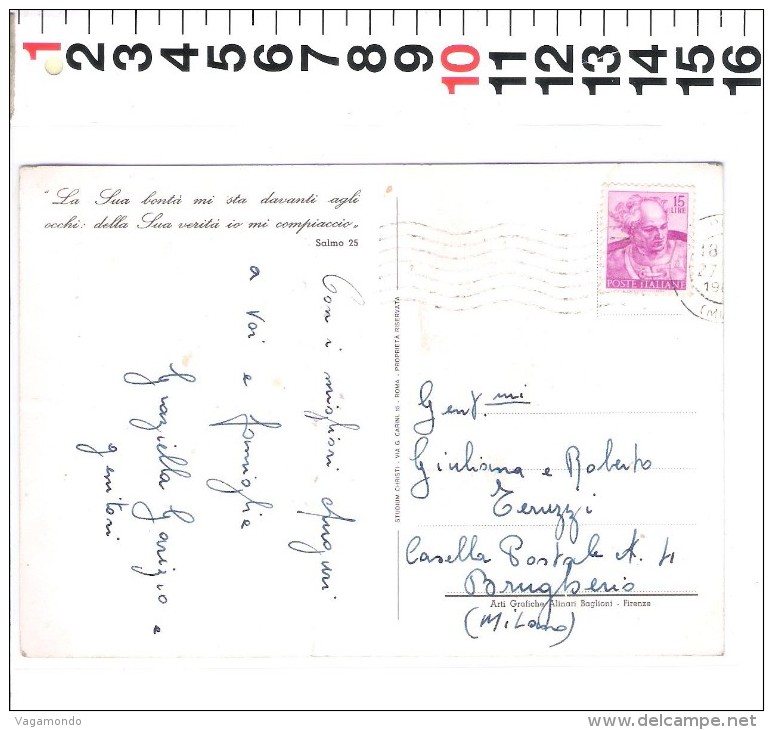 1 2 3 4 5 6 7 8 9 10 11 12 13 14 15 16
"La Sua bontà mi sta davanti agli
occhi: della Sua verità io mi compiaccio„
Salmo 25
Con i migliori Auguri
a voi e famiglia
Graziella Garizio e
genitori
STUDIUM CHRISTI - VIA G. CARINI, - ROMA - PROPRIETÀ RISERVATA
15
LIRE
POSTE ITALIANE
18
27
Gent.mi
Giuliana e Roberto
Teruzzi
Casella Postale N. 4
Brugherio
Arti Grafiche Alinari Baglioni - Firenze
(Milano)
Vagamondo
delcampe.net